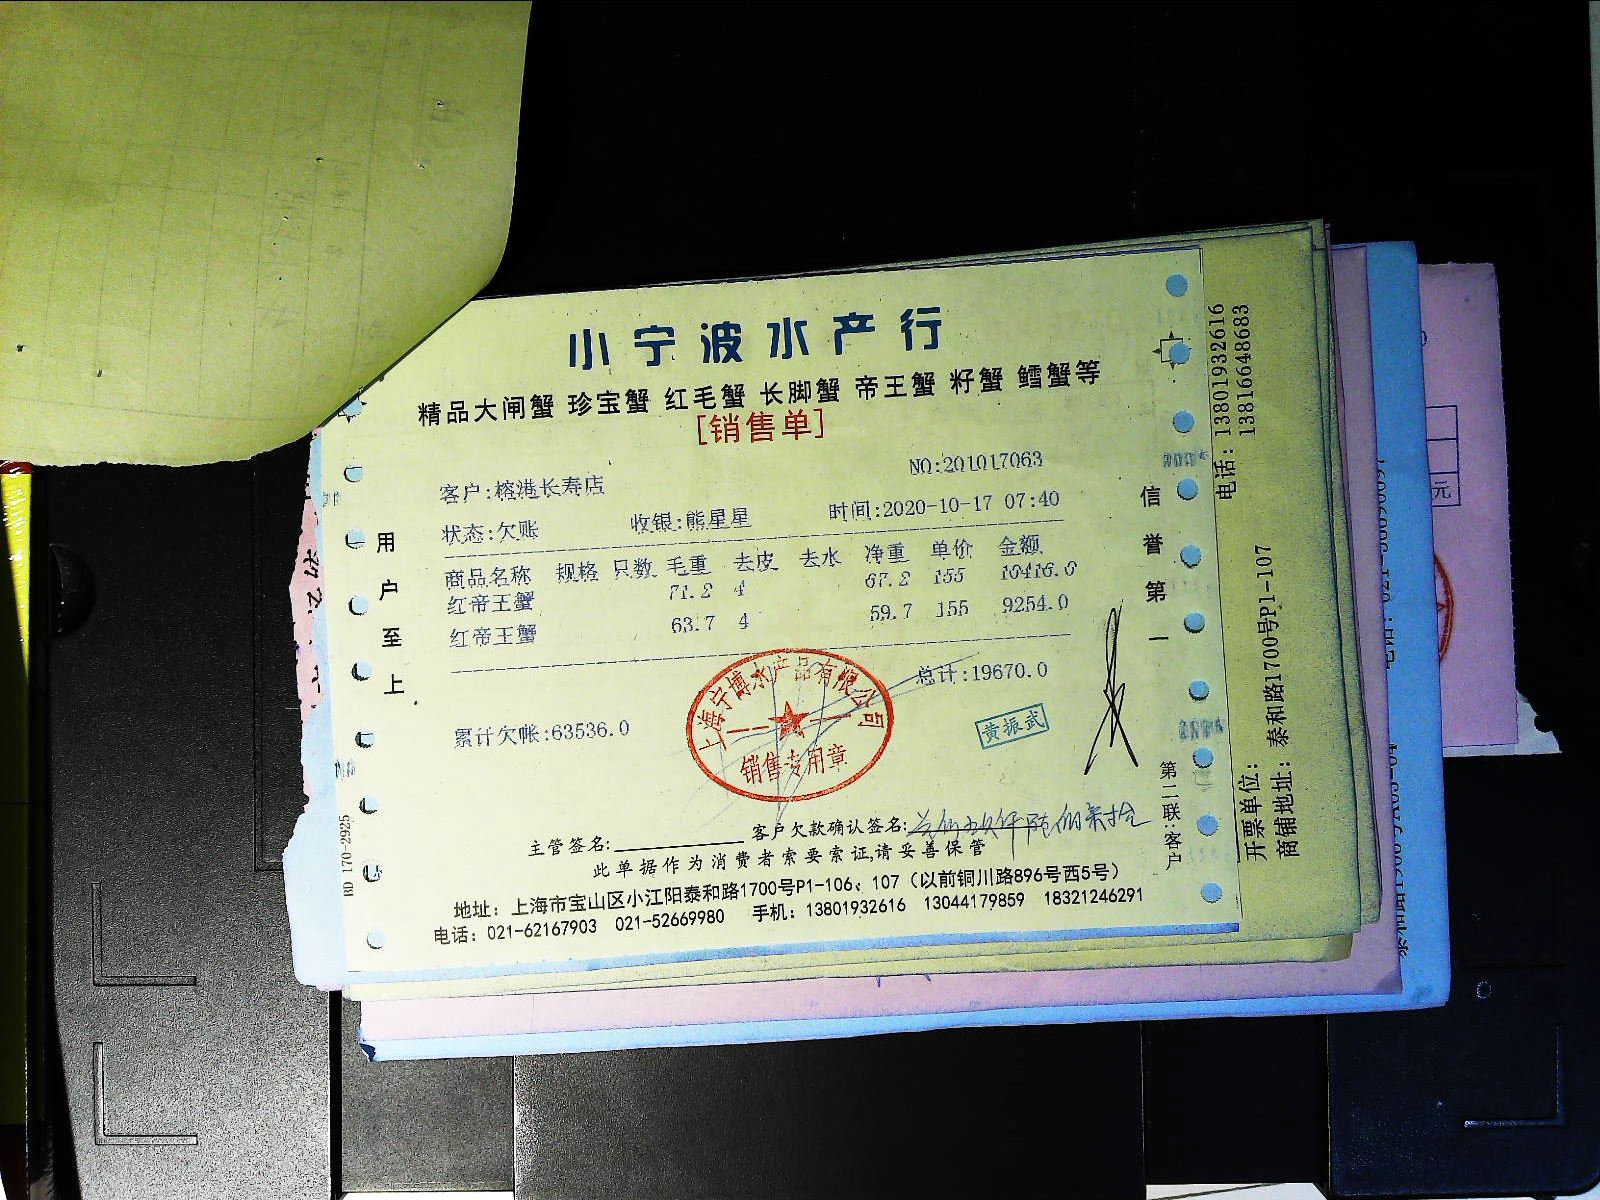 小宁波水产行
精品大闸蟹 珍宝蟹 红毛蟹 长脚蟹 帝王蟹 籽蟹 鳕蟹等
[销售单]
NO:201017063
客户:榕港长寿店
状态:欠账 收银:熊星星 时间:2020-10-17 07:40
商品名称 规格 只数 毛重 去皮 去水 净重 单价 金额
红帝王蟹 71.2 4 67.2 155 10416.0
红帝王蟹 63.7 4 59.7 155 9254.0
总计:19670.0
累计欠帐:63536.0
上海宁博水产品有限公司
销售专用章
黄振武
主管签名: 客户欠款确认签名:
此单据作为消费者索要索证,请妥善保管
地址：上海市宝山区小江阳泰和路1700号P1-106、107（以前铜川路896号西5号）
电话：021-62167903 021-52669980 手机：13801932616 13044179859 18321246291
用户至上
信誉第一
第二联:客户
RD 170-2925
电话：13801932616
13816648683
开票单位：
商铺地址：泰和路1700号P1-107
元